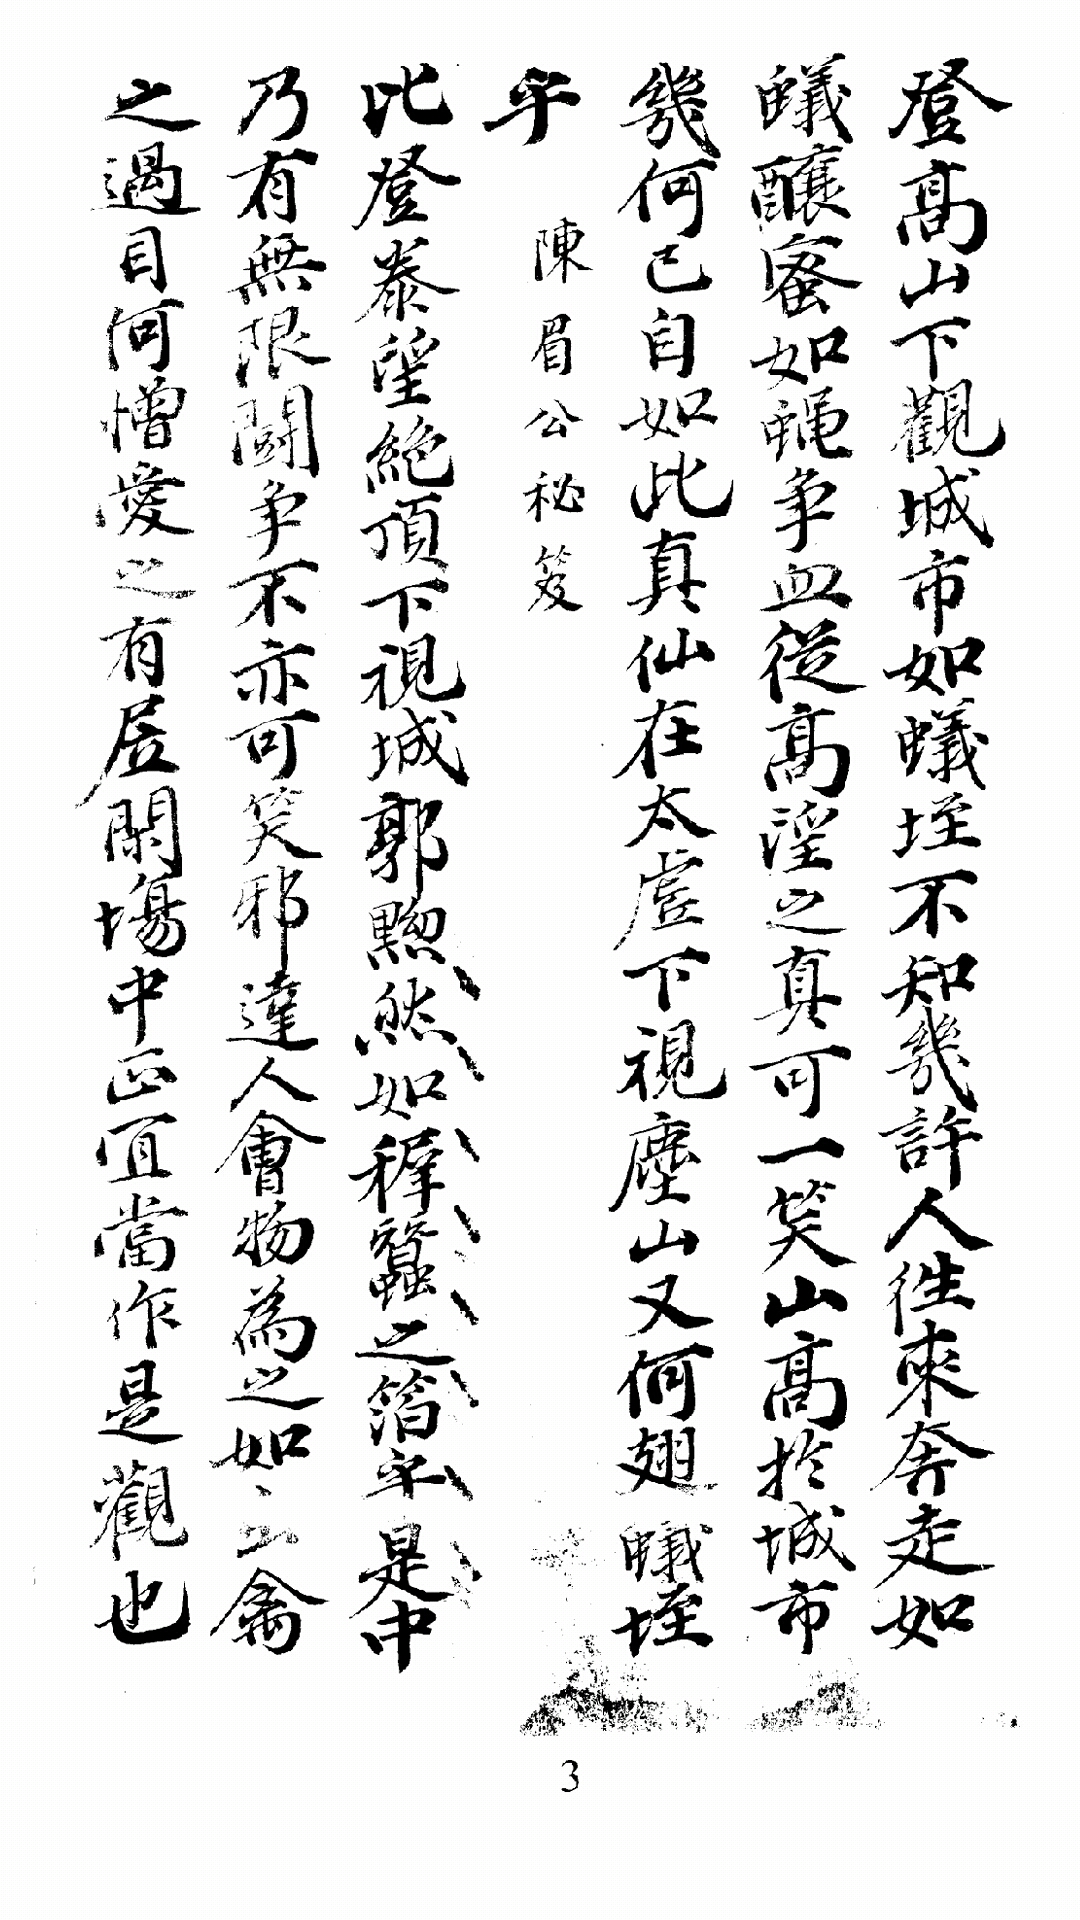 登高山下觀城市如蟻垤不知幾許人徃來奔走如
蟻釀蜜如蠅争血從高望之真可一笑山高扵城市
幾何已自如此真仙在太虛下視塵山又何翅蟻垤
乎 陳眉公秘笈
比登泰望絶頂下視城郭黯然如稺蠶之箔乎是中
乃有無限鬪争不亦可笑邪達人會物為之如禽
之過目何憎愛之有居閙場中正宜當作是觀也
3